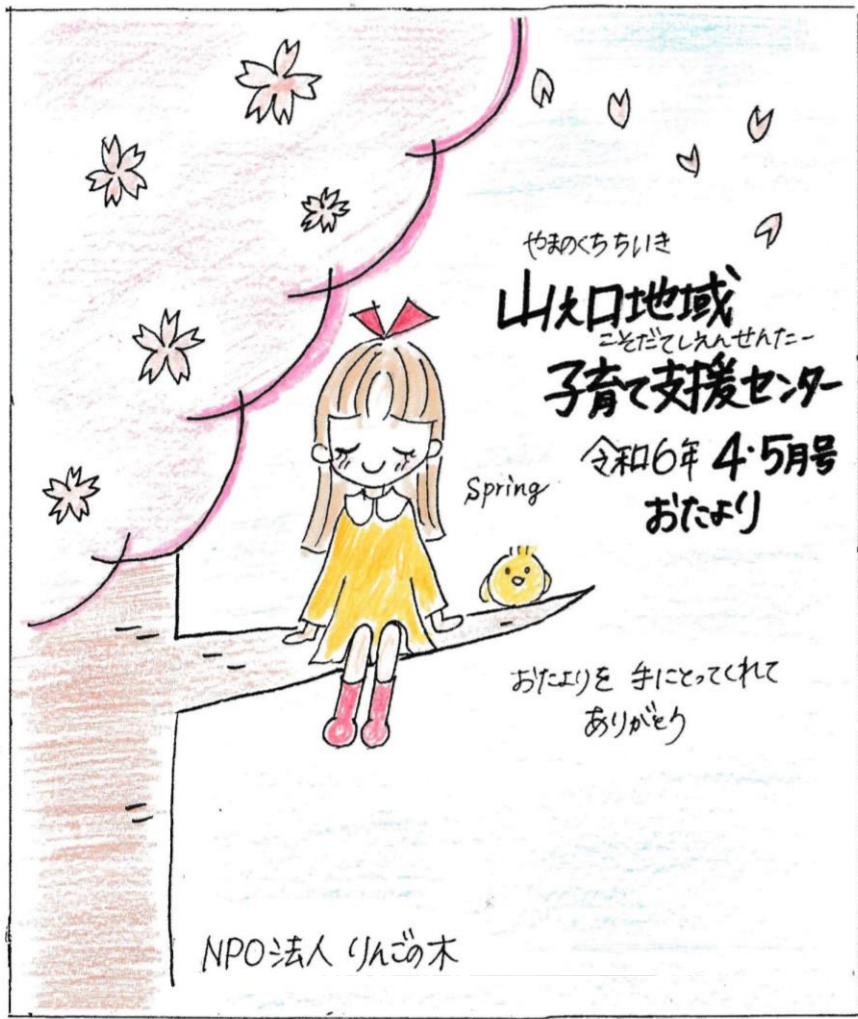 やまのくちちいき
山之口地域
こそだてしえんせんたー
子育て支援センター
令和6年 4・5月号
おたより
Spring
おたよりを 手にとってくれて
ありがとう
NPO法人 りんごの木